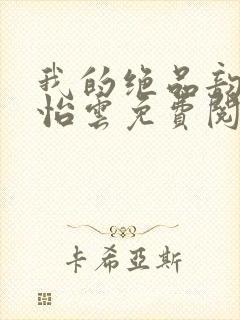 我的绝品
怡雲免費閱
卡希亞斯